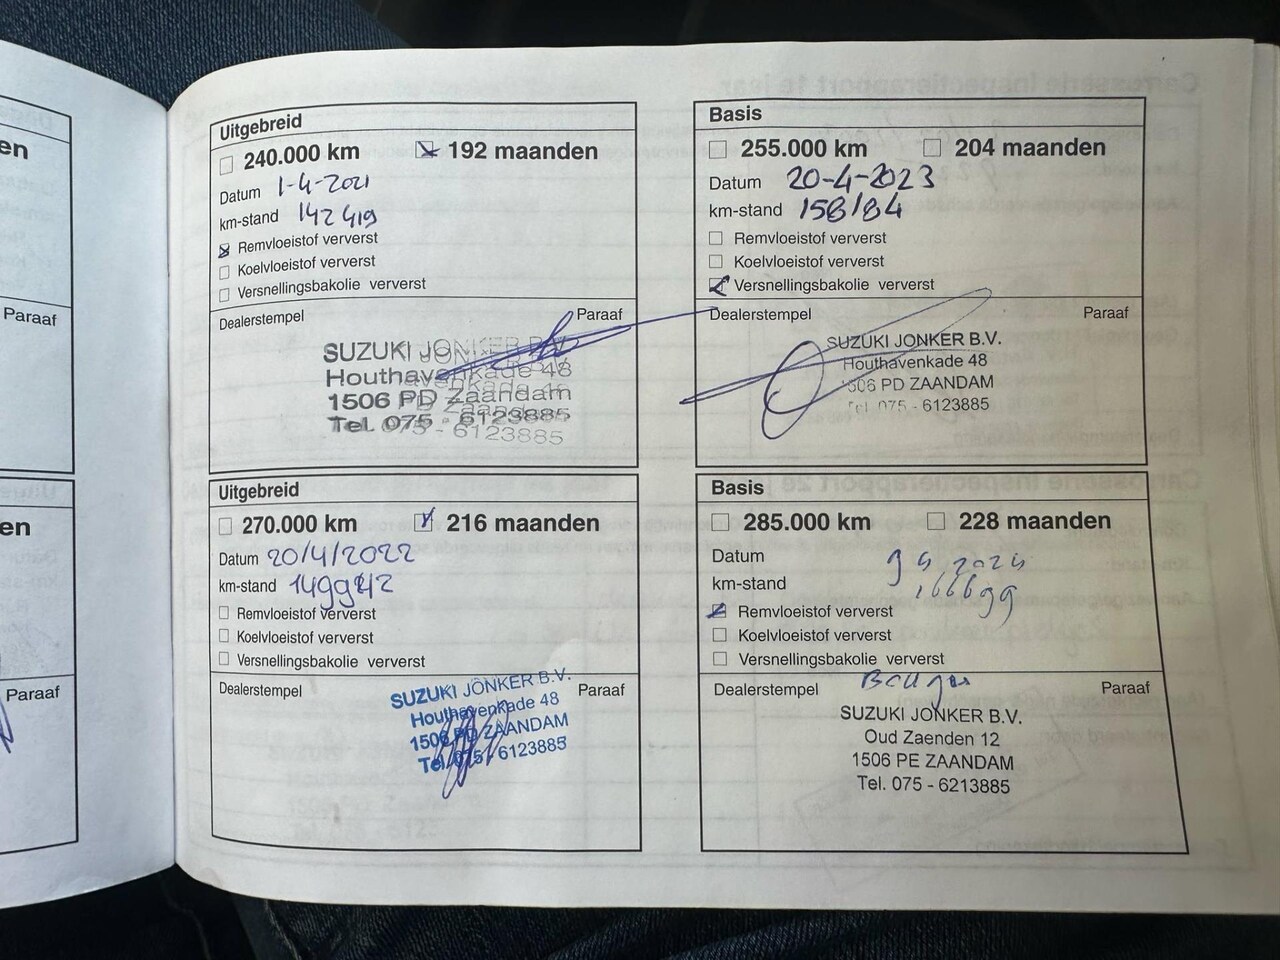 en
Paraaf
en
Paraaf
Uitgebreid
240.000 km 192 maanden
Datum 1-4-2021
km-stand 142419
Remvloeistof ververst
Koelvloeistof ververst
Versnellingsbakolie ververst
Dealerstempel Paraaf
SUZUKI JONKER B.V.
Houthavenkade 48
1506 PD Zaandam
Tel. 075 - 6123885
Basis
255.000 km 204 maanden
Datum 20-4-2023
km-stand 158184
Remvloeistof ververst
Koelvloeistof ververst
Versnellingsbakolie ververst
Dealerstempel Paraaf
SUZUKI JONKER B.V.
Houthavenkade 48
1506 PD ZAANDAM
Tel. 075 - 6123885
Uitgebreid
270.000 km 216 maanden
Datum 20/4/2022
km-stand
Remvloeistof ververst
Koelvloeistof ververst
Versnellingsbakolie ververst
Dealerstempel Paraaf
SUZUKI JONKER B.V.
Houthavenkade 48
1506 PD ZAANDAM
Tel. 075 - 6123885
Basis
285.000 km 228 maanden
Datum 9 4 2024
km-stand 166699
Remvloeistof ververst
Koelvloeistof ververst
Versnellingsbakolie ververst
Dealerstempel Paraaf
SUZUKI JONKER B.V.
Oud Zaenden 12
1506 PE ZAANDAM
Tel. 075 - 6213885